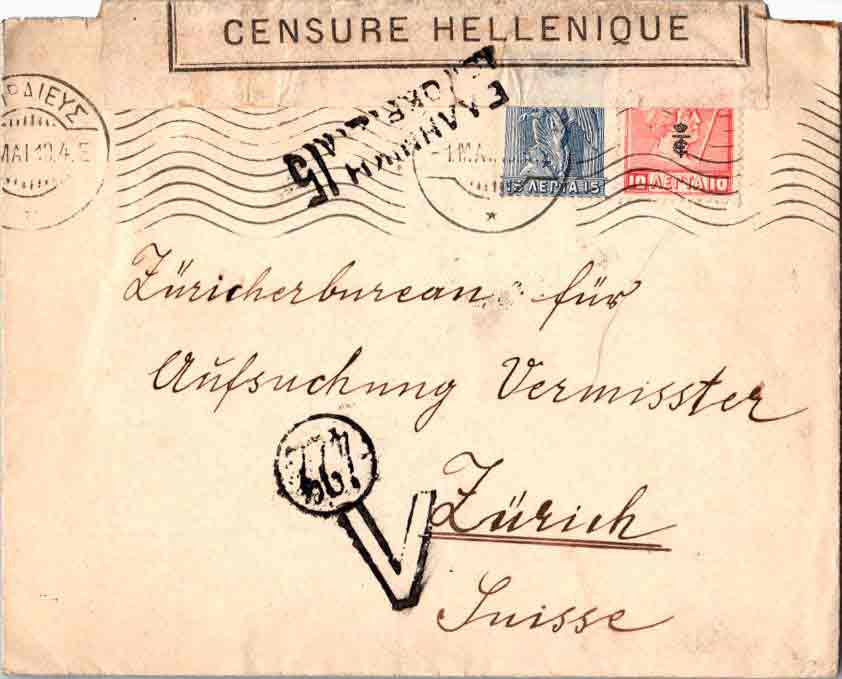 CENSURE HELLENIQUE
ΕΛΛΗΝΙΚΗ
15
ΜΑΙ 19.4.Ε
-1.ΜΑ
15 ΛΕΠΤΑ 15
10 ΛΕΠΤΑ 10
Züricherbureau für
Aufsuchung Vermisster
Zürich
Suisse